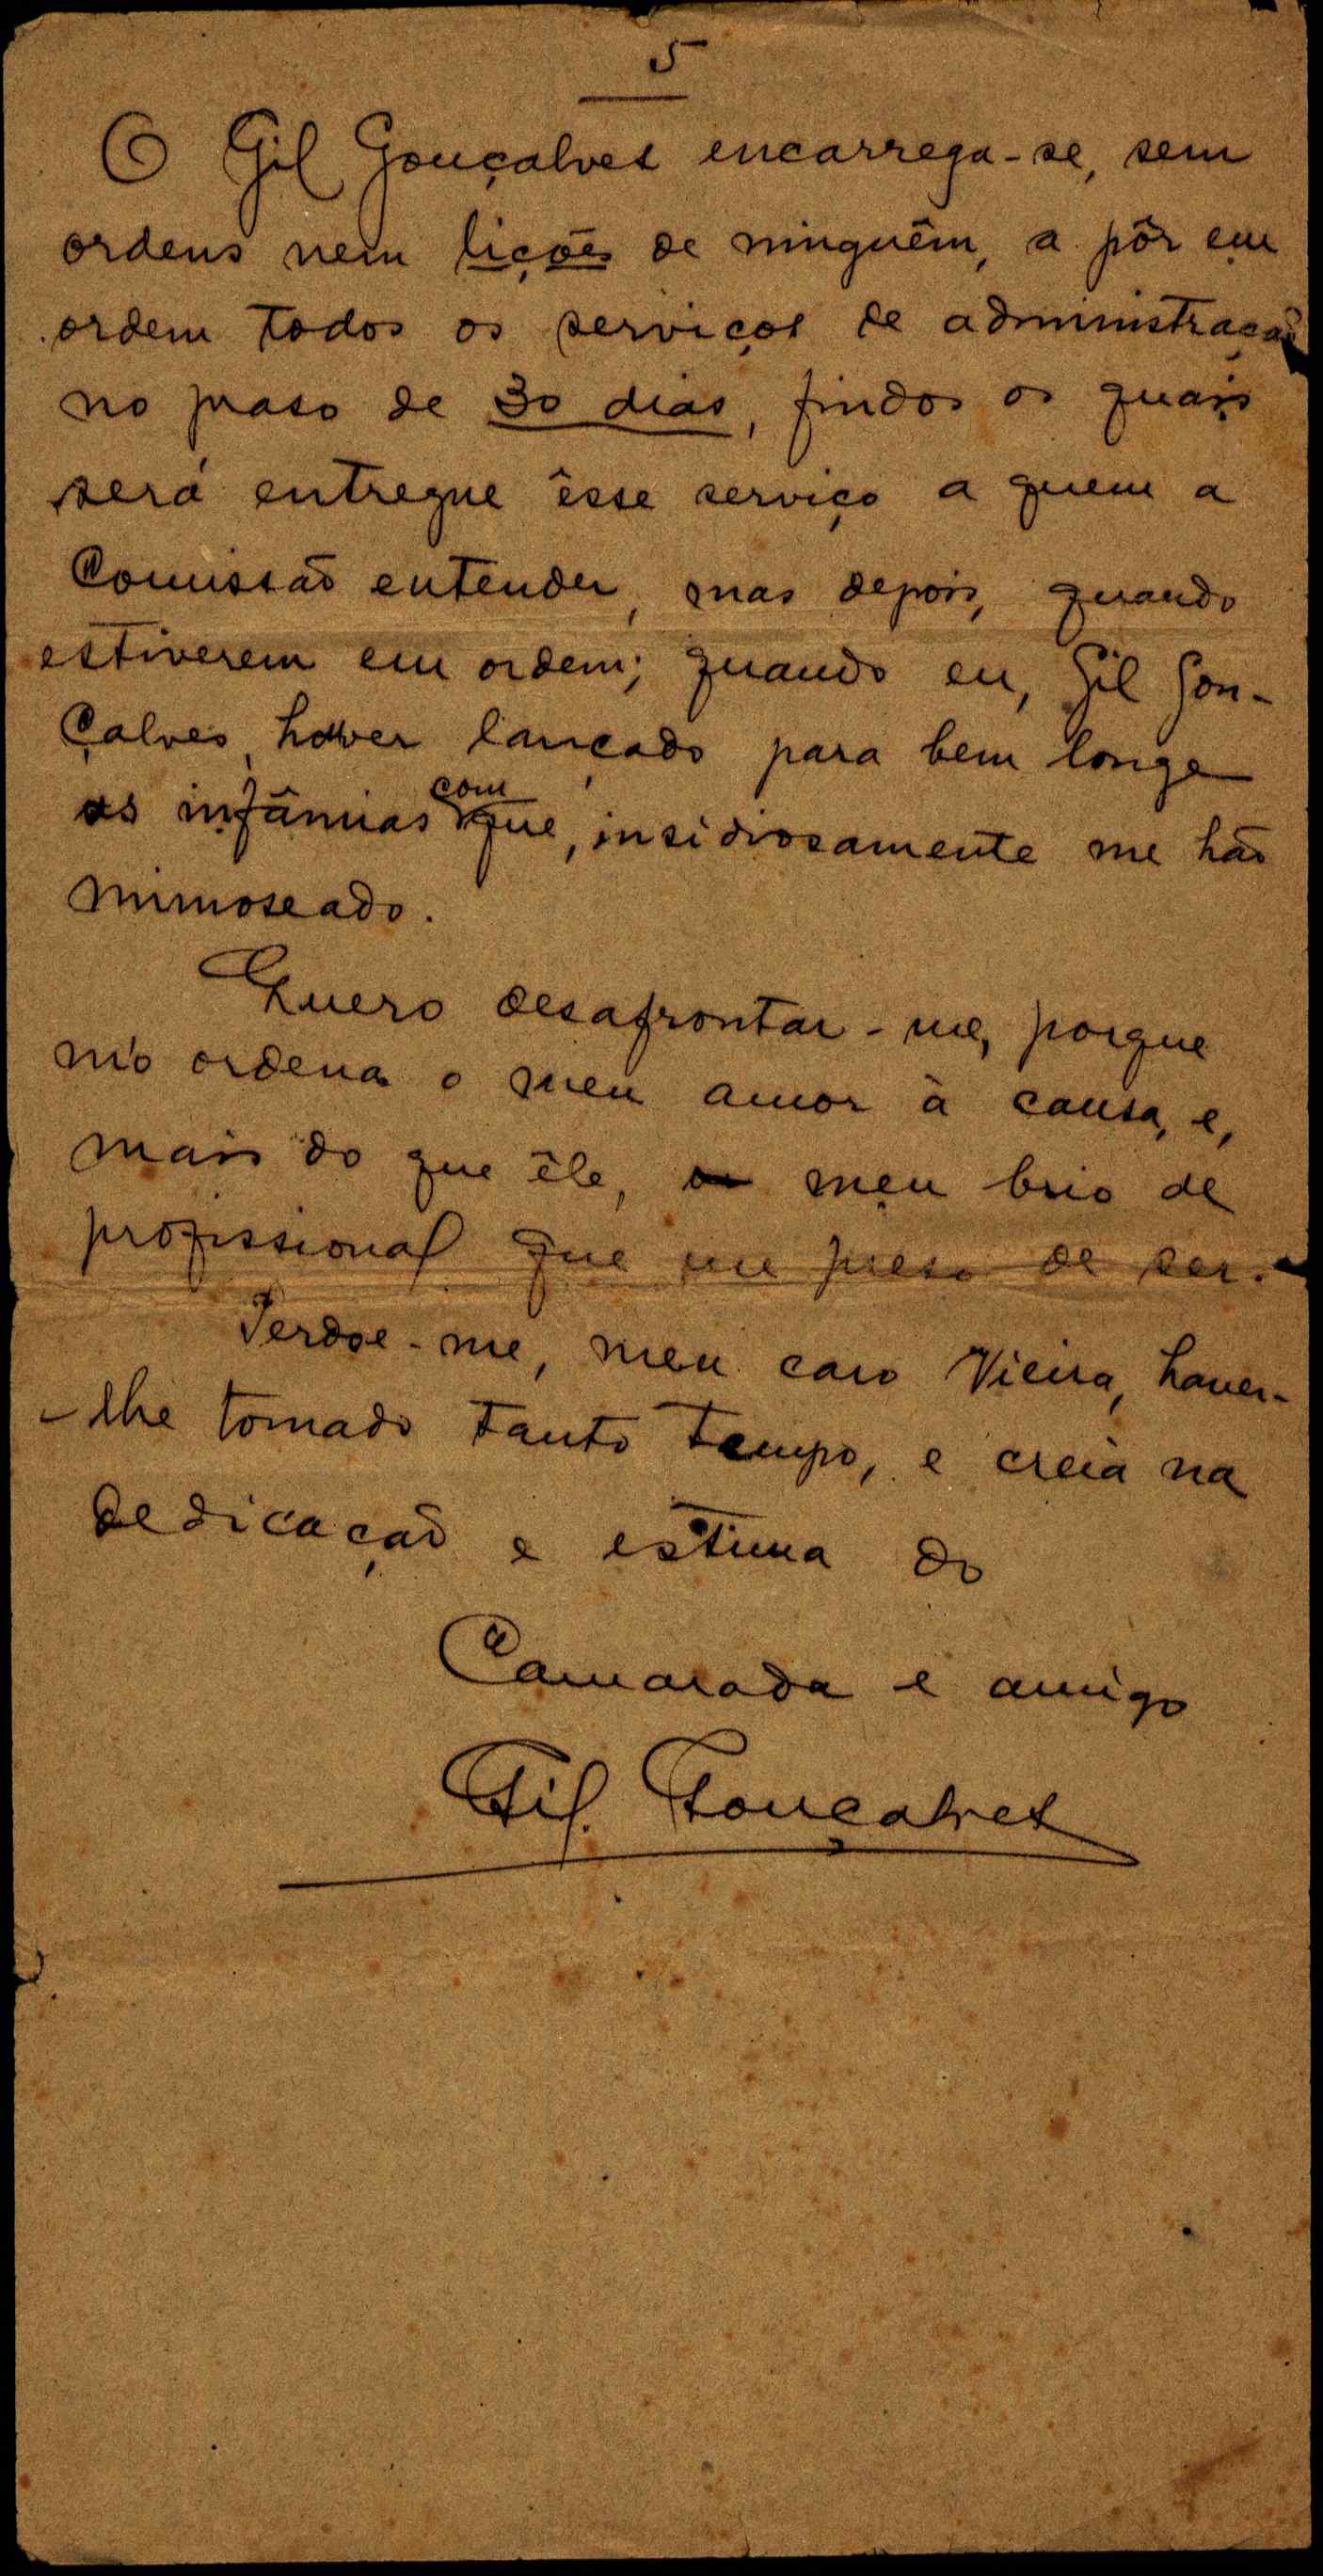 5
O Gil Gonçalves encarrega-se, sem
ordens nem lições de ninguêm, a pôr em
ordem todos os serviços de administração
no praso de 30 dias, findos os quais
será entregue êsse serviço a quem a
Comissão entender, mas depois, quando
estiverem em ordem; quando eu, Gil Gon-
çalves, houver lançado para bem longe
as infâmias com que, insidiosamente me hão
mimoseado.
Quero desafrontar-me, porque
m'o ordena o meu amor à causa, e,
mais do que êle, o meu brio de
profissional que me preso de ser.
Perdoe-me, meu caro Vieira, haver-
-lhe tomado tanto tempo, e creia na
dedicação e estima do
Camarada e amigo
Gil Gonçalves